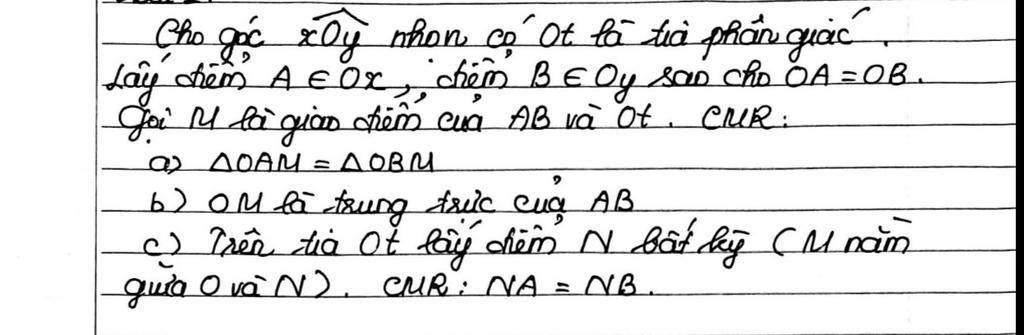 Cho góc xOy nhọn có Ot là tia phân giác.
Lấy điểm A ∈ Ox, điểm B ∈ Oy sao cho OA = OB.
Gọi M là giao điểm của AB và Ot. CMR:
a) △OAM = △OBM
b) OM là trung trực của AB
c) Trên tia Ot lấy điểm N bất kỳ (M nằm
giữa O và N). CMR: NA = NB.